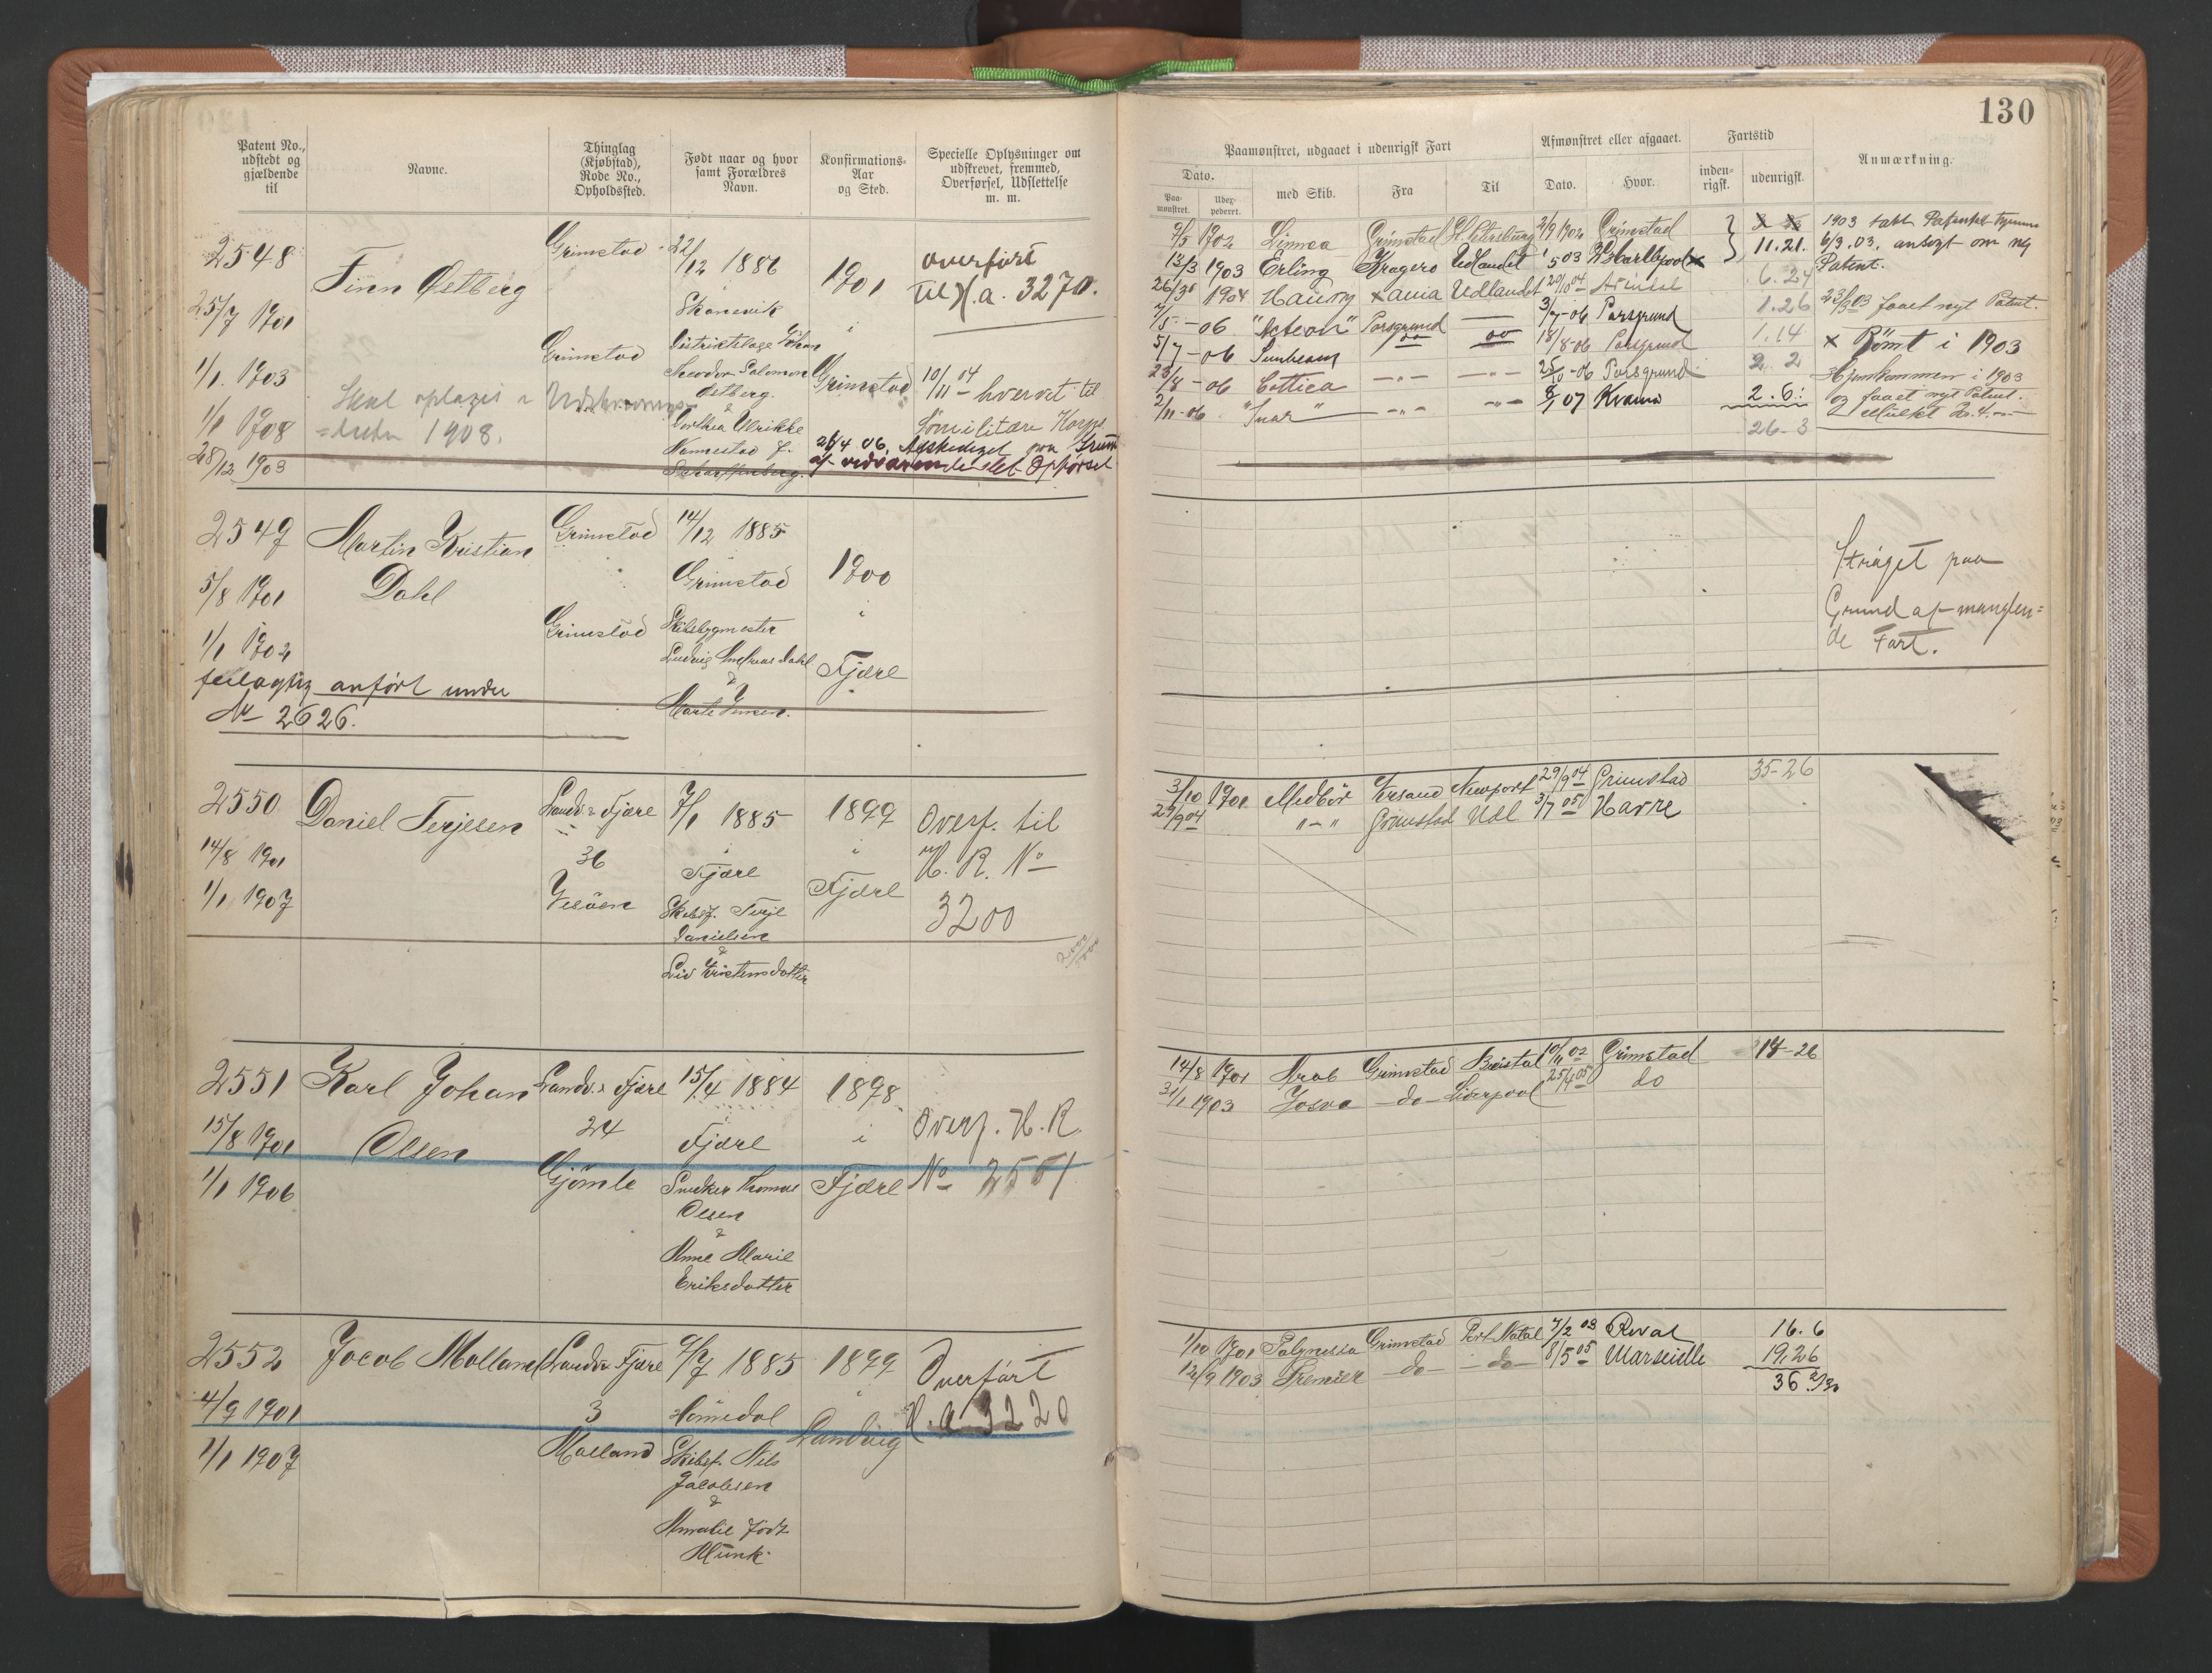 130
Patent No., udstedt og gjældende til
Navne.
Thinglag (Kjøbstad), Rode No., Opholdssted.
Født naar og hvor samt Forældres Navn.
Konfirmations-Aar og Sted.
Specielle Oplysninger om udskrevet, fremmed, Overførsel, Udslettelse m. m.
Paamønstret, udgaaet i udenrigsk Fart
Afmønstret eller afgaaet.
Fartstid
Anmærkning.
Dato.
med Skib.
Fra
Til
Dato.
Hvor.
inden-rigsk.
udenrigsk.
Paa-mønstret.
Udex-pederet.
2548
Finn Østberg
Grimstad
22/12 1886
1901
overført
til H.a. 3270.
25/7 1901
Skonevik
i
Grimstad
Distriktslæge Johan
Theodor Salomon
Østberg.
&
Dorthea Ulrikke
Grimstad
10/11 04
hvervet til
Sömilitære Korps
1/1 1903
Skal optages i Udskrivnings-
1/1 1908
=listen 1908.
28/12 1903
26/4 06. Afskediget paa Grund
af vedvarende slet Opførsel
7/5 1902 Linnea Grimstad St. Petersburg 2/9 1902 Grimstad
13/3 1903 Erling Kragerö Udlandet
11.21.
1904 Udlandet
6.24
7/5 -06 "Acteon" Porsgrund 3/7-06 Porsgrund 1.26
5/7 -06 Sunbeam do do 18/8-06 Porsgrund 1.14
23/8 -06 Cottica -"- -"- Porsgrund 2. 2
2/11-06 "Snar" -"- -"- 07 2.6.
26-3
1903 tabt Patentet
6/3.03. ansøgt om nyt
Patent.
faaet nyt Patent.
x Römt i 1903
Hjemkommen i 1903
og faaet nyt Patent.
Mulkt 20.4.
2549
Martin Kristian
Dahl
Grimstad
14/12 1885
Grimstad
1900
i
Fjære
5/8 1901
Grimstad
Skibsbygmester
Ludvig Andreas Dahl
&
Marte Jensen.
1/1 1902
feilagtig anført under
No 2626.
Ströget paa
Grund af manglen=
de Fart.
2550
Daniel Terjesen
Landv. & Fjære
36
Vesöen
7/1 1885
i
Fjære
Skibsf. Terje
Danielsen
&
Liv Kristensdatter
1899
i
Fjære
Overf. til
H. R. No
3200
14/8 1901
1/1 1907
3/10 1901 Medbör Krsand Newport 29/9 04 Grimstad 35-26
29/9 04 "-" Grimstad Udl 3/7 05 Havre
2551
Karl Johan
Olsen
Landv. & Fjære
24
Gjömle
15/4 1884
i
Fjære
Snedker Thomas
Olsen
&
Anne Marie
Eriksdatter
1898
i
Fjære
Overf. H. R.
No 2551
15/8 1901
1/1 1906
14/8 1901 Arab Grimstad Bristol 10/11 02 Grimstad 14-26
31/1 1903 Josva -do- Liverpool 25/4 05 do
2552
Jacob Molland
Landv. & Fjære
3
Molland
9/7 1885
Homedal
Skibsf. Nils
Jacobsen
&
Amalie født
Munk.
1899
i
Landvig
Overført
H.a 3220
4/9 1901
1/1 1907
1/10 1901 Grimstad Port Natal 7/2 03 Reval 16.6
12/9 1903 Premier -do- -do- 8/5 05 Marseille 19.26
36 2/30